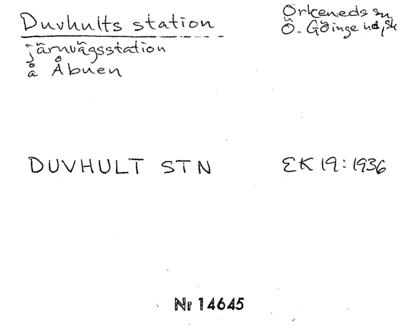 Duvhults station
Örkeneds sn
Ö. Göinge hd, Sk
järnvägsstation
å Åbuen
DUVHULT STN
EK 19:1936
Nr 14645